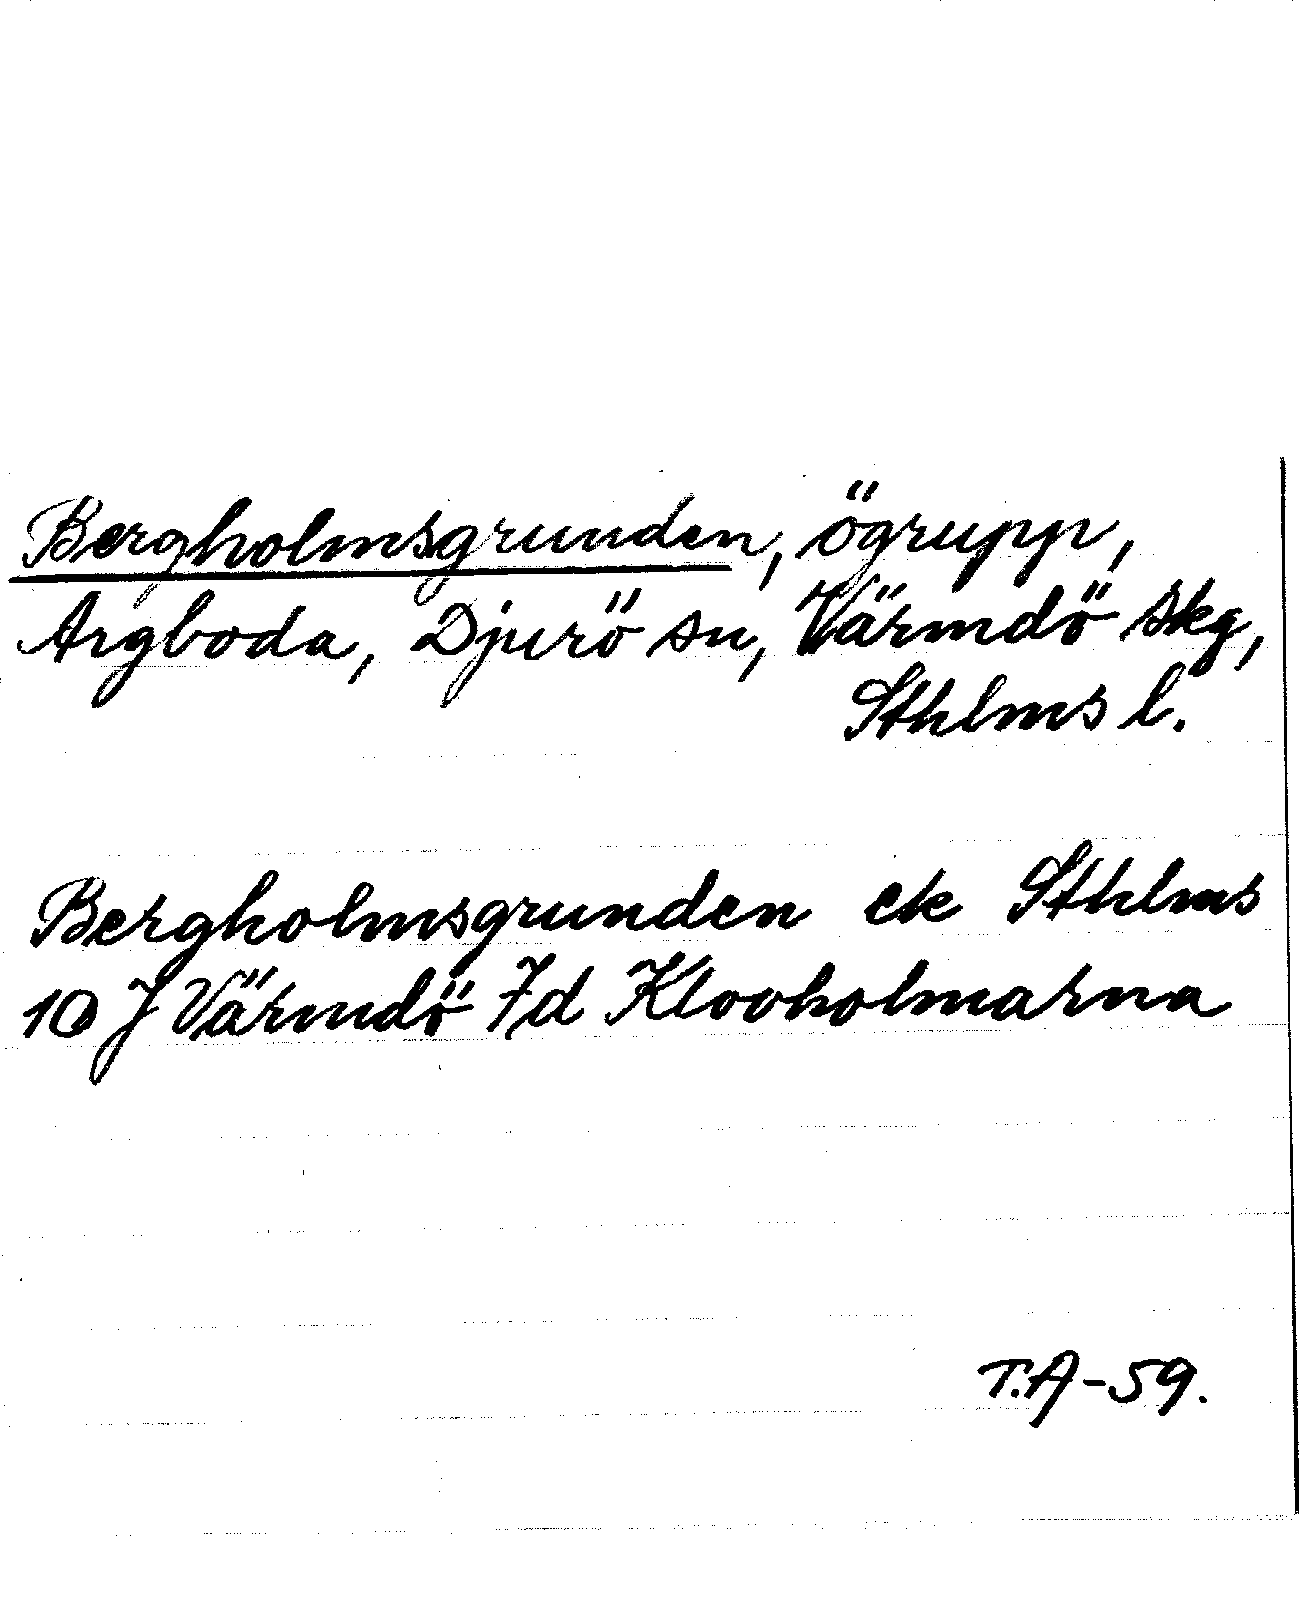 Bergholmsgrunden, ögrupp,
Argboda, Djurö sn, Värmdö skg,
Sthlms l.
Bergholmsgrunden ek Sthlms
10 J Värmdö 7d Klovholmarna
T.A-59.